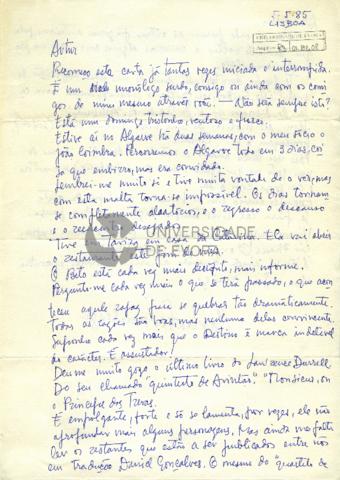 5.5.85
LISBOA
Artur
Recomeço esta carta já tantas vezes iniciada e interrompida.
É um monólogo surdo, comigo ou ainda com os comi
gos de mim mesmo através você. — Não será sempre isto?
Está um domingo tristonho, ventoso e fusco.
Estive aí no Algarve há duas semanas, com o meu sócio o
João Coimbra. Percorremos o Algarve todo em 3 dias, coi
sa que embirro, mas era convidado.
Lembrei-me muito si e tive muita vontade de o ver, mas
com esta malta torna-se impossível. Os dias tornam
se completamente aleatórios, e o regresso o descanso
e o
Tive em Tavira em casa do Ela vai abrir
o restaurante
UNIVERSIDADE
DE ÉVORA
O Beto está cada vez mais decrépito, mais informe.
Pergunto-me cada vez mais o que se terá passado, o que acon
teceu àquele rapaz para se quebrar tão dramaticamente.
Todas as razões são boas, mas nenhuma delas convincente.
Suponho cada vez mais que o Destino é marca indelével
do carácter. É assustador!
Deu-me muito gozo, o último livro do Lawrence Durrell
Do seu chamado quinteto de Avinhão "Monsieur, ou
o Príncipe das Trevas.
É empolgante, forte e só se lamenta, por vezes, ele não
aprofundar mais alguns personagens. Mas ainda me falta
ler os restantes que estão a ser publicados entre nós
em tradução Daniel Gonçalves. O mesmo do "quarteto de